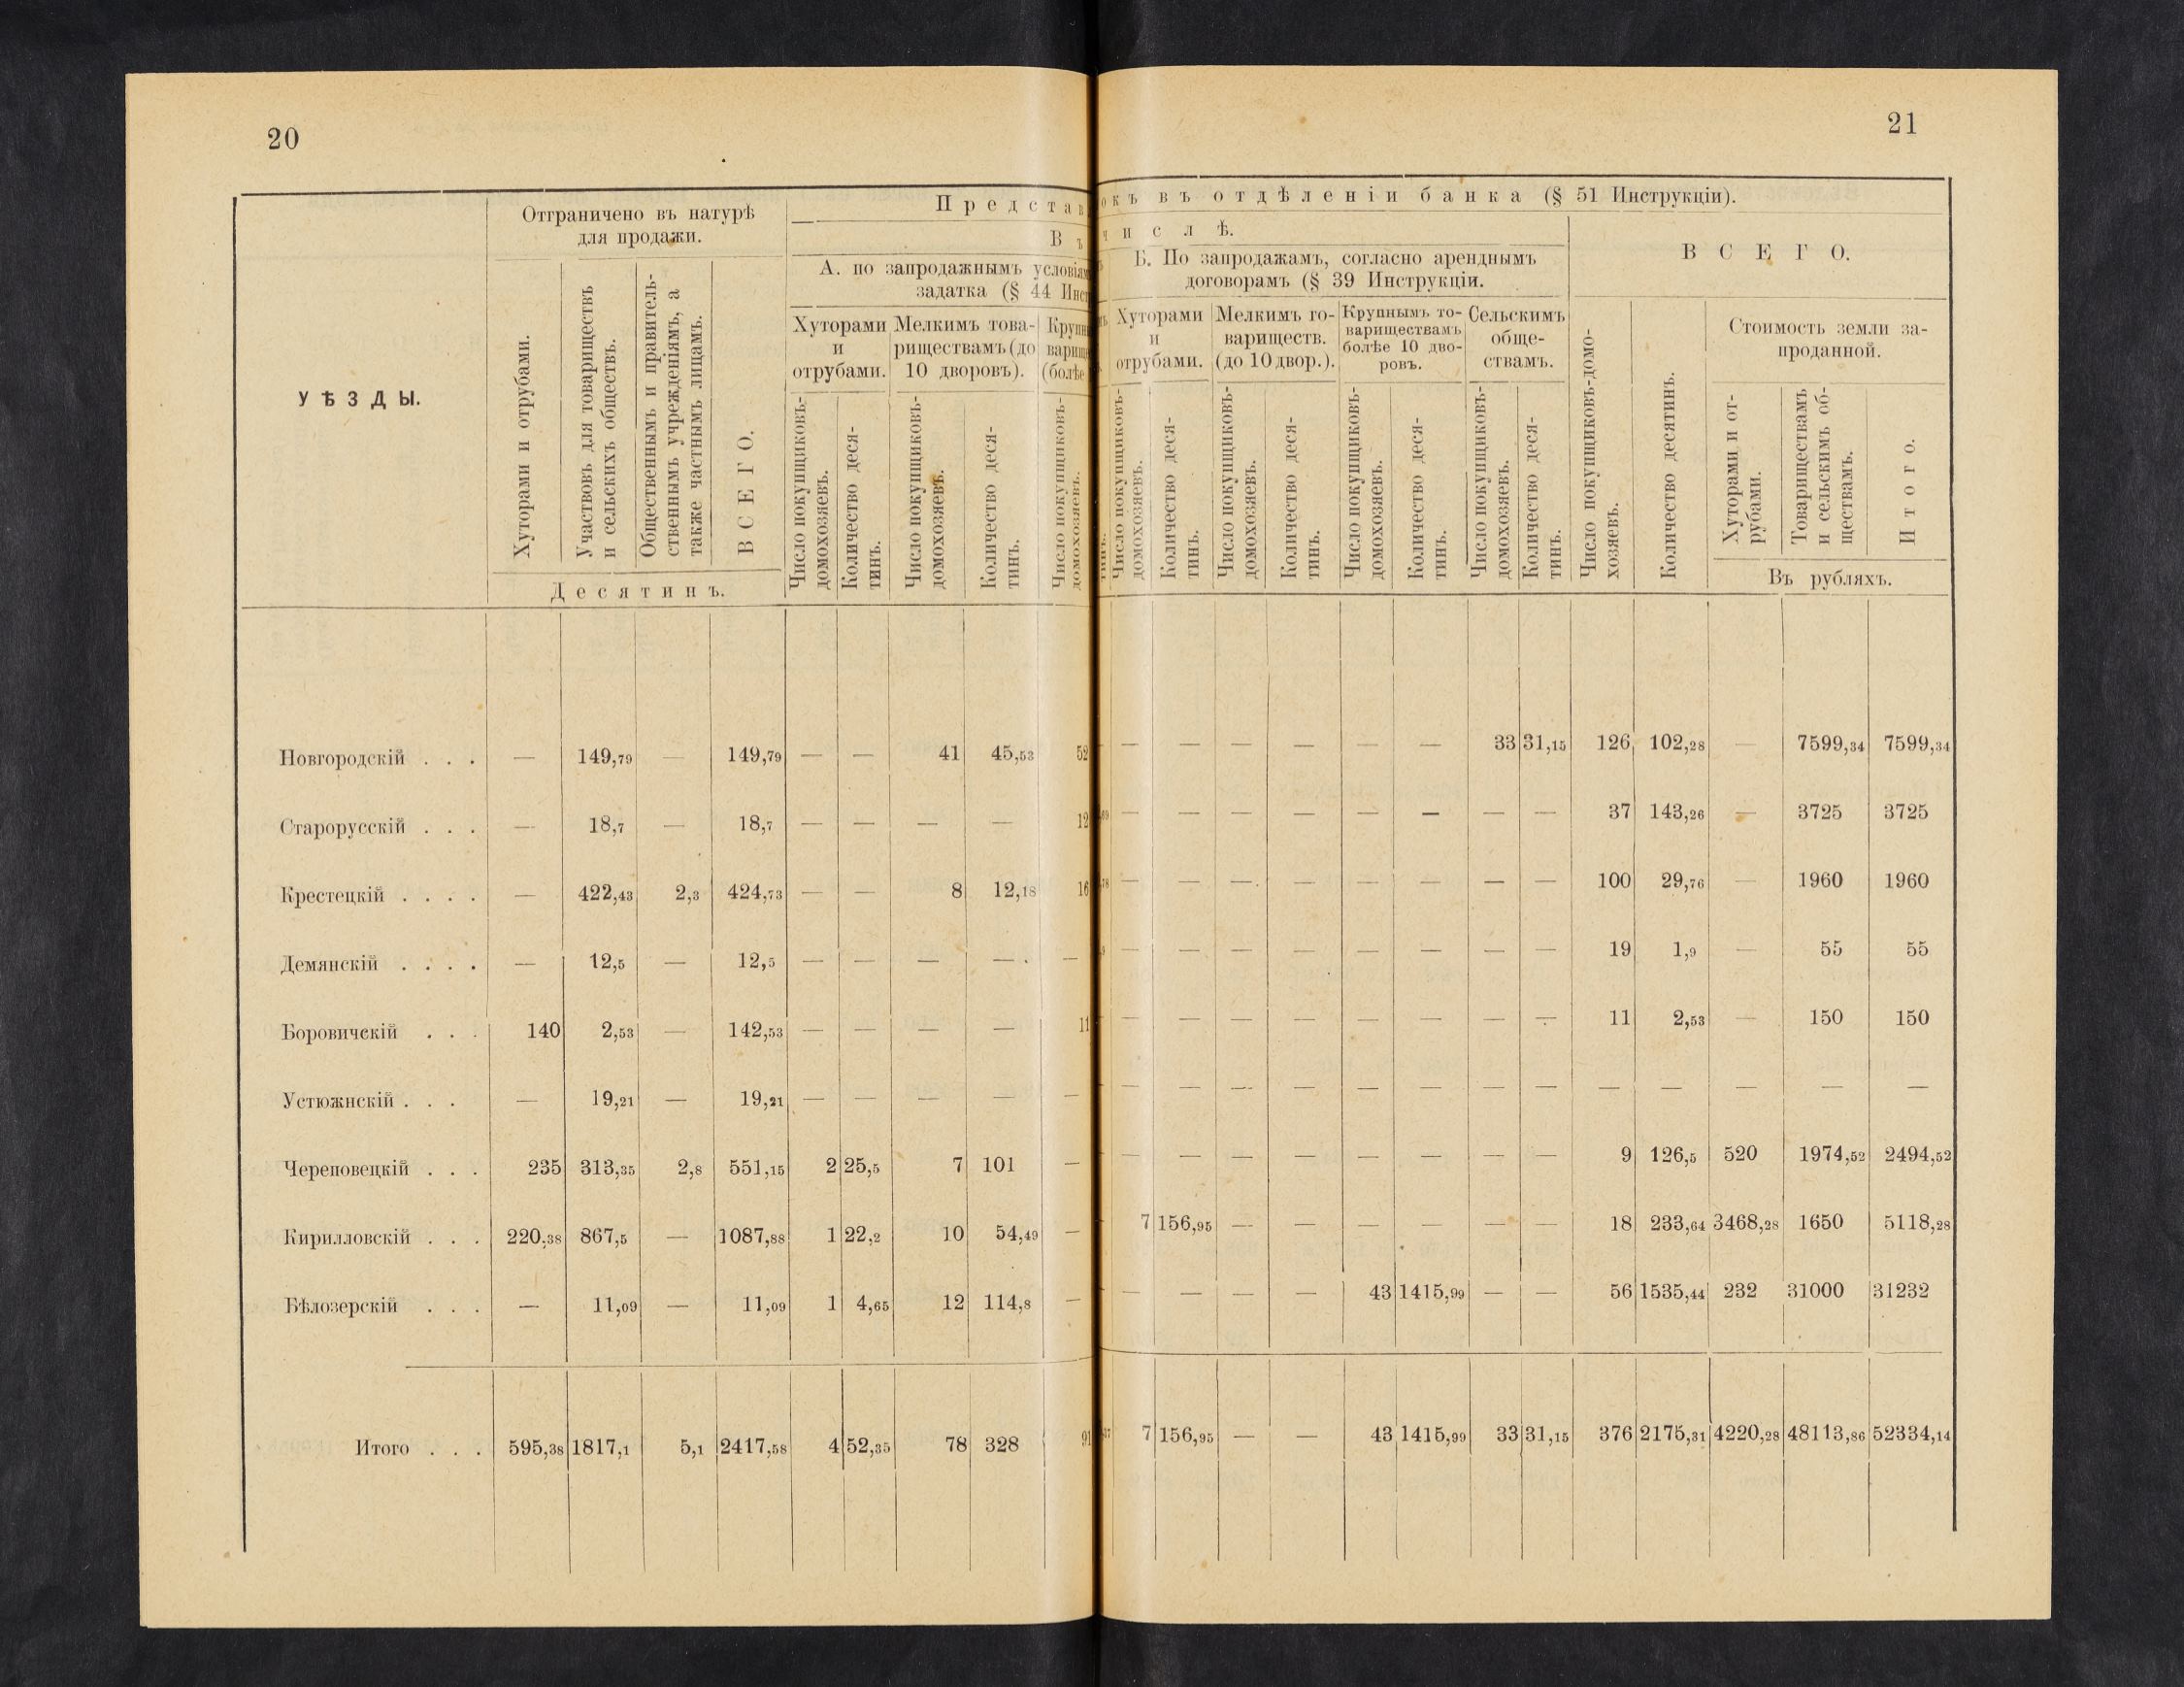 20
Отграничено въ натурѣ
для продажи.
Представ
Въ
А. по запродажнымъ условіям
задатка (§ 44 Инс
Хуторами
и
отрубами.
Мелкимъ това-
риществамъ (до
10 дворовъ).
Крупн
варищ
(болѣе
УѢЗДЫ.
Хуторами и отрубами.
Участвовъ для товариществъ
и сельскихъ обществъ.
Общественнымъ и правитель-
ственнымъ учрежденіямъ, а
также частнымъ лицамъ.
ВСЕГО.
Число покупщиковъ-
домохозяевъ.
Количество деся-
тинъ.
Число покупщиковъ-
домохозяевъ.
Количество деся-
тинъ.
Число покупщиковъ-
домохозяевъ.
Десятинъ.
Новгородскій . . . — 149,79 — 149,79 — — 41 45,53 52
Старорусскій . . . — 18,7 — 18,7 — — — — 12
Крестецкій . . . . — 422,43 2,3 424,73 — — 8 12,18 16
Демянскій . . . . — 12,5 — 12,5 — — — — —
Боровичскій . . . 140 2,53 — 142,53 — — — — 11
Устюжнскій . . . — 19,21 — 19,21 — — — — —
Череповецкій . . . 235 313,35 2,8 551,15 2 25,5 7 101 —
Кирилловскій . . . 220,38 867,5 — 1087,88 1 22,2 10 54,49 —
Бѣлозерскій . . . — 11,09 — 11,09 1 4,65 12 114,8 —
Итого . . . 595,38 1817,1 5,1 2417,58 4 52,35 78 328 91
21
окъ въ отдѣленіи банка (§ 51 Инструкціи).
числѣ.
Б. По запродажамъ, согласно аренднымъ
договорамъ (§ 39 Инструкціи.
ВСЕГО.
Хуторами
и
отрубами.
Мелкимъ то-
вариществ.
(до 10 двор.).
Крупнымъ то-
вариществамъ
болѣе 10 дво-
ровъ.
Сельскимъ
обще-
ствамъ.
Стоимость земли за-
проданной.
Число покупщиковъ-
домохозяевъ.
Количество деся-
тинъ.
Число покупщиковъ-
домохозяевъ.
Количество деся-
тинъ.
Число покупщиковъ-
домохозяевъ.
Количество деся-
тинъ.
Число покупщиковъ-
домохозяевъ.
Количество деся-
тинъ.
Число покупщиковъ-домо-
хозяевъ.
Количество десятинъ.
Хуторами и от-
рубами.
Товариществамъ
и сельскимъ об-
ществамъ.
Итого.
Въ рубляхъ.
— — — — — — 33 31,15 126 102,28 — 7599,34 7599,34
— — — — — — — — 37 143,26 — 3725 3725
— — — — — — — — 100 29,76 — 1960 1960
— — — — — — — — 19 1,9 — 55 55
— — — — — — — — 11 2,53 — 150 150
— — — — — — — — — — — — —
— — — — — — — — 9 126,5 520 1974,52 2494,52
7 156,95 — — — — — — 18 233,64 3468,28 1650 5118,28
— — — — 43 1415,99 — — 56 1535,44 232 31000 31232
7 156,95 — — 43 1415,99 33 31,15 376 2175,31 4220,28 48113,86 52334,14